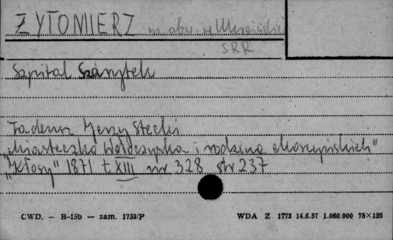 ŻYTOMIERZ na ob. w Ukraińskiej
SRR
Szpital Szarytek
Tadeusz Jerzy Stecki
"Miasteczko Wołczyńska i rodzina Moszyńskich"
"Kłosy" 1871 t. XIII nr 328 str 237
CWD. - B-15b - zam. 1753/P WDA Z 1773 14.6.57 1.060.000 75×125